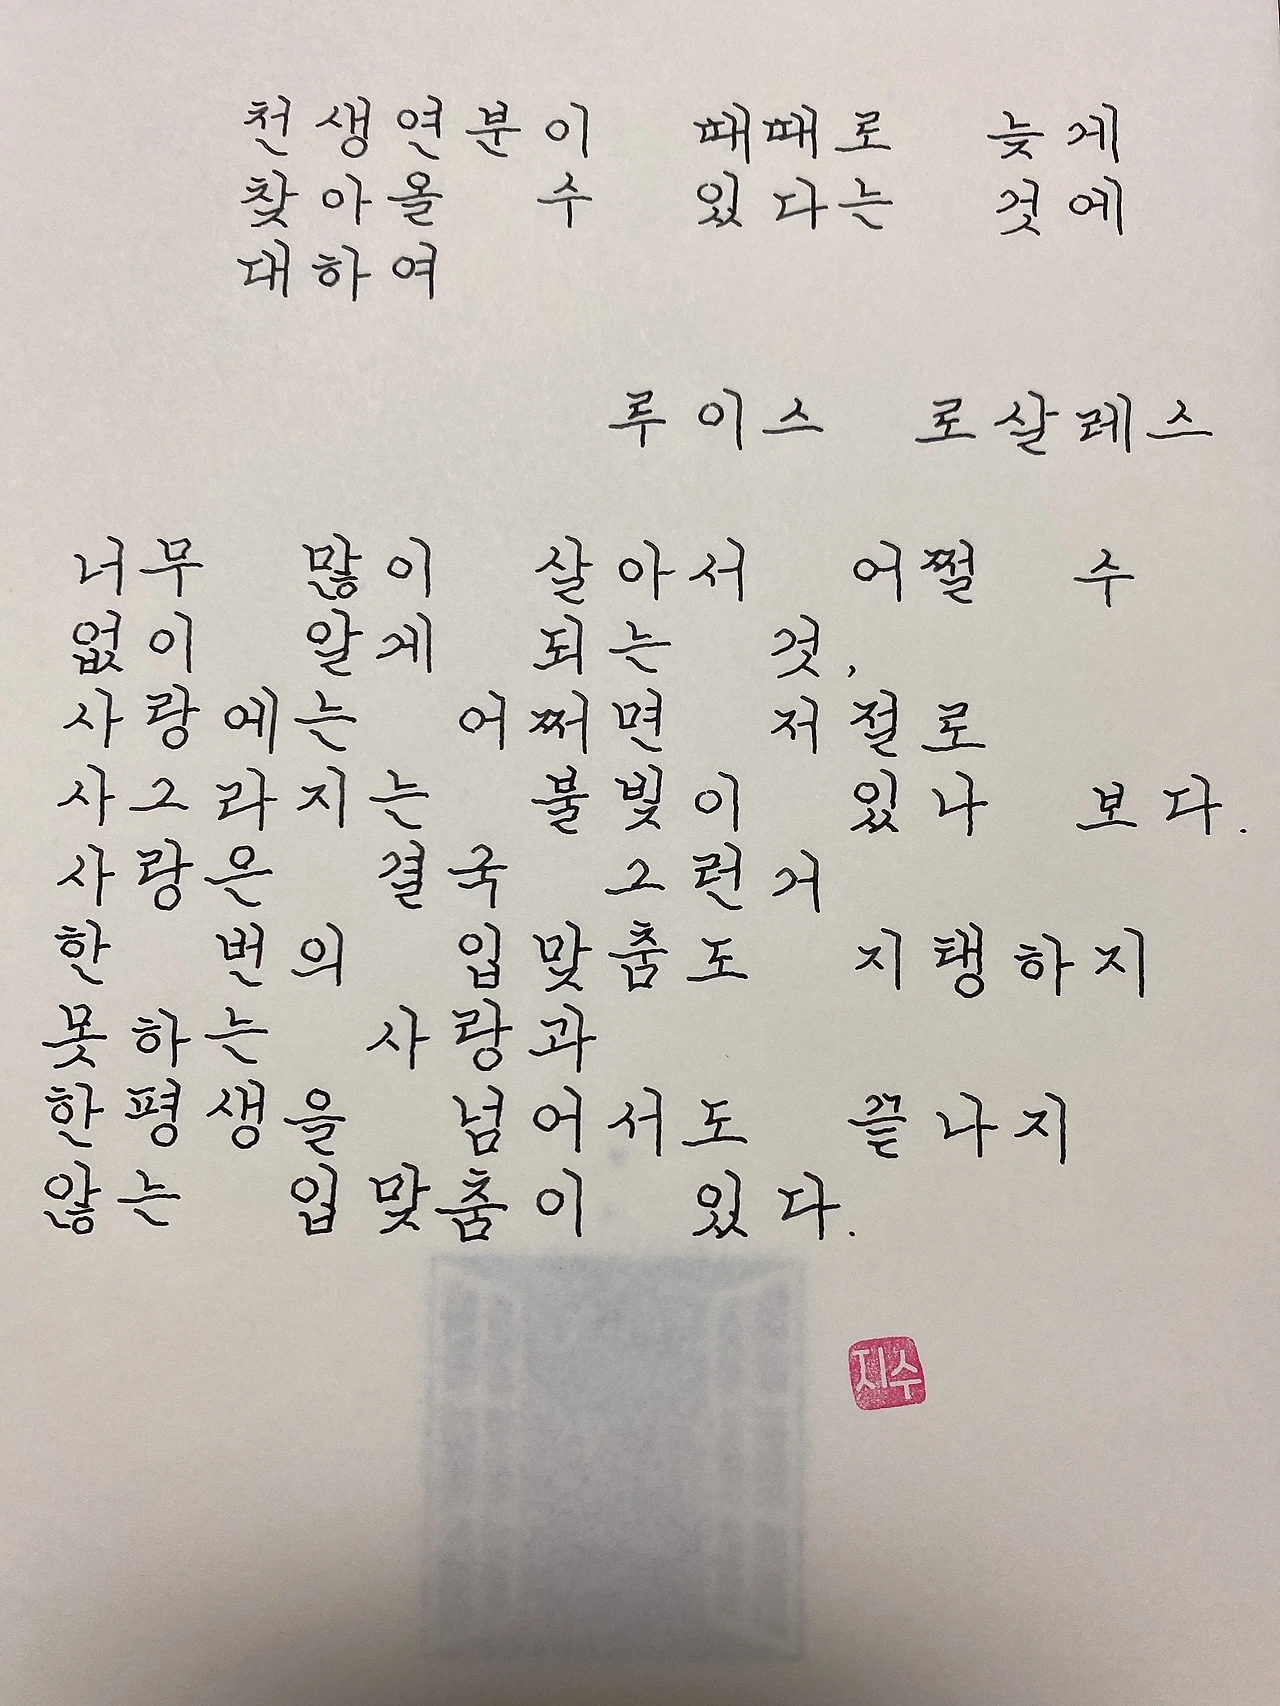 천생연분이 때때로 늦게
찾아올 수 있다는 것에
대하여
루이스 로살레스
너무 많이 살아서 어쩔 수
없이 알게 되는 것,
사랑에는 어쩌면 저절로
사그라지는 불빛이 있나 보다.
사랑은 결국 그런거
한 번의 입맞춤도 지탱하지
못하는 사랑과
한평생을 넘어서도 끝나지
않는 입맞춤이 있다.
지수